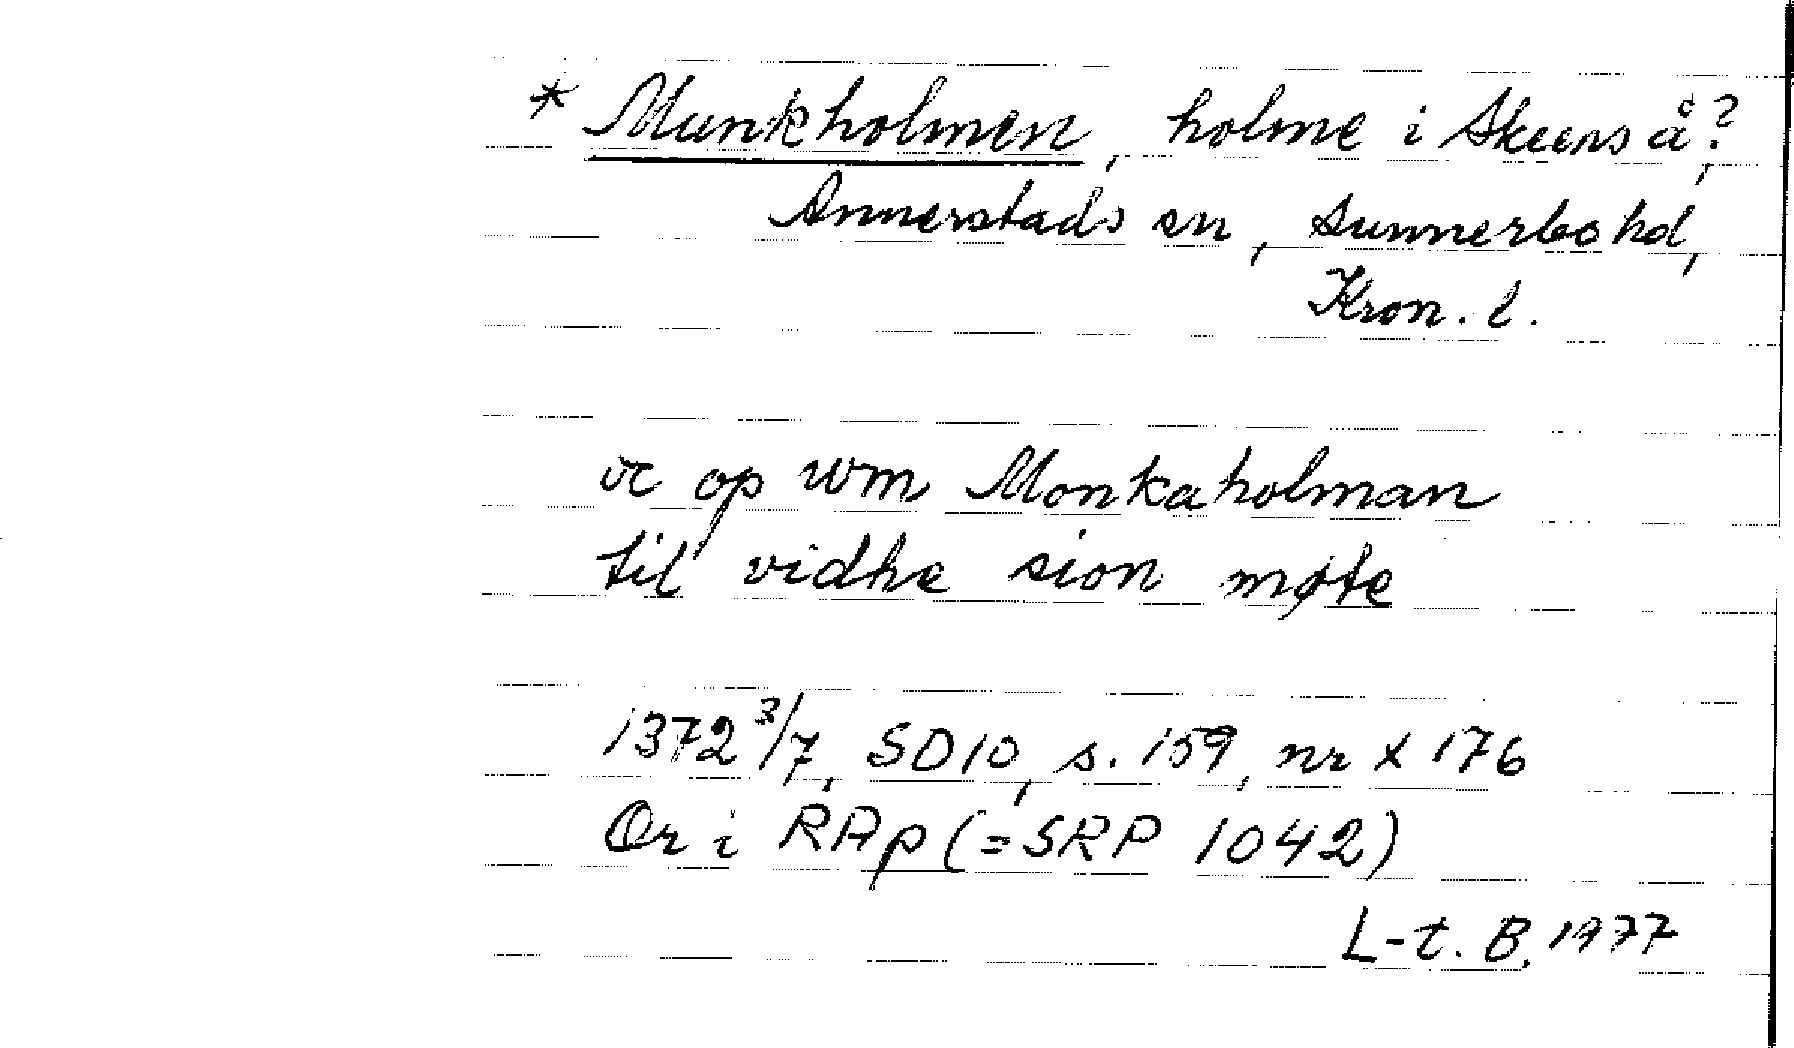 * Munkholmen, holme i Skeens å?,
Annerstads sn, Sunnerbo hd,
Kron. l.
oc op wm Monkaholman
til vidhe sion møte
1372 3/7, SD10, s. 159, nr X 176
Or i RAp (=SRP 1042)
L-t. B. 1977